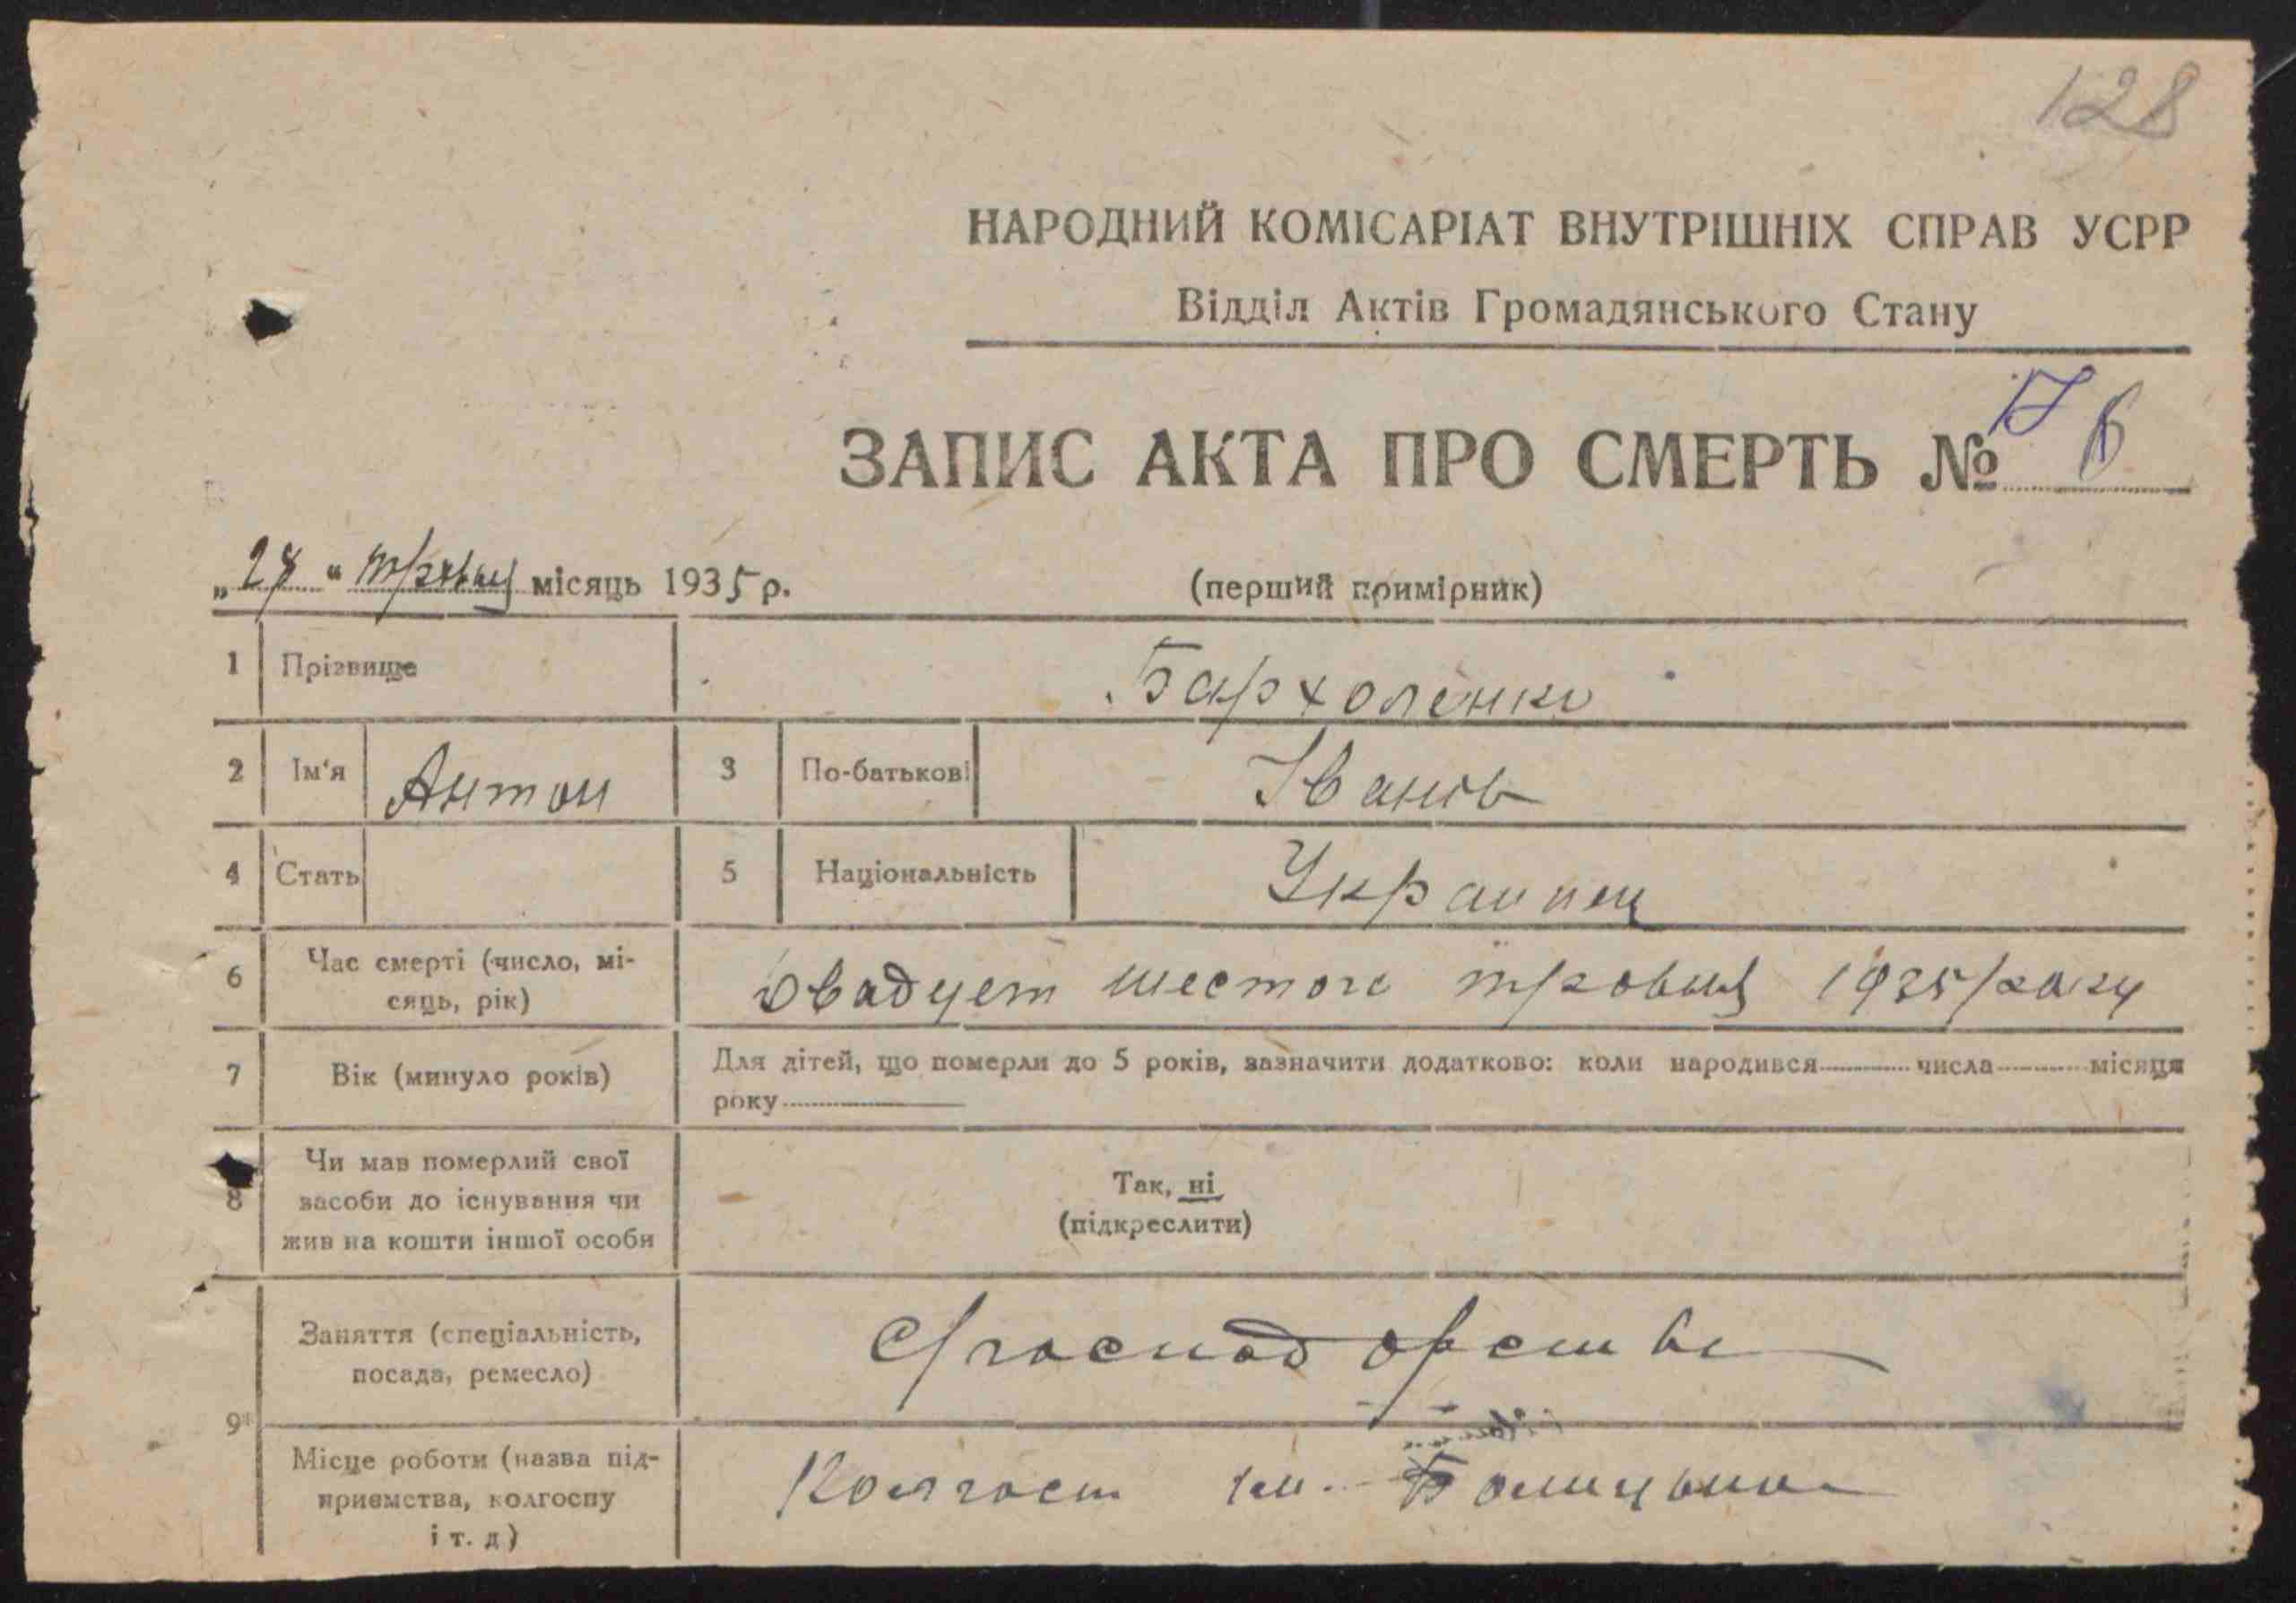 128
НАРОДНИЙ КОМІСАРІАТ ВНУТРІШНІХ СПРАВ УСРР
Відділ Актів Громадянського Стану
ЗАПИС АКТА ПРО СМЕРТЬ № 6
„27“ травня місяць 1935 р. (перший примірник)
1 Прізвище Бархоленко
2 Ім'я Антон 3 По-батькові Іванов
4 Стать 5 Національність Украинец
6 Час смерті (число, мі-
сяць, рік) двадцет шестого травня 1935 року
7 Вік (минуло років) Для дітей, що померли до 5 років, зазначити додатково: коли народився числа місяця
року
8 Чи мав померлий свої
засоби до існування чи
жив на кошти іншої особи
Так, ні
(підкреслити)
9 Заняття (спеціальність,
посада, ремесло)
Місце роботи (назва під-
приємства, колгоспу
і т. д)
Колгосп им.